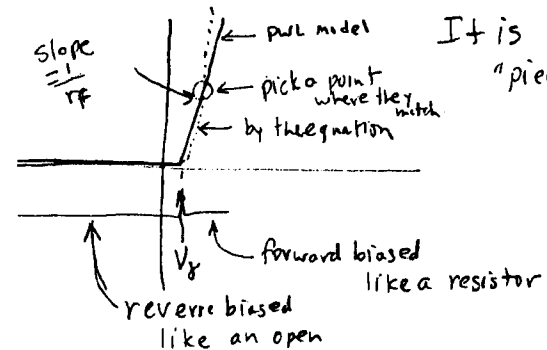 slope
= 1/rf
pwl model
pick a point
where they
match
by the equation
It is
"pie
Vγ
forward biased
like a resistor
reverse biased
like an open